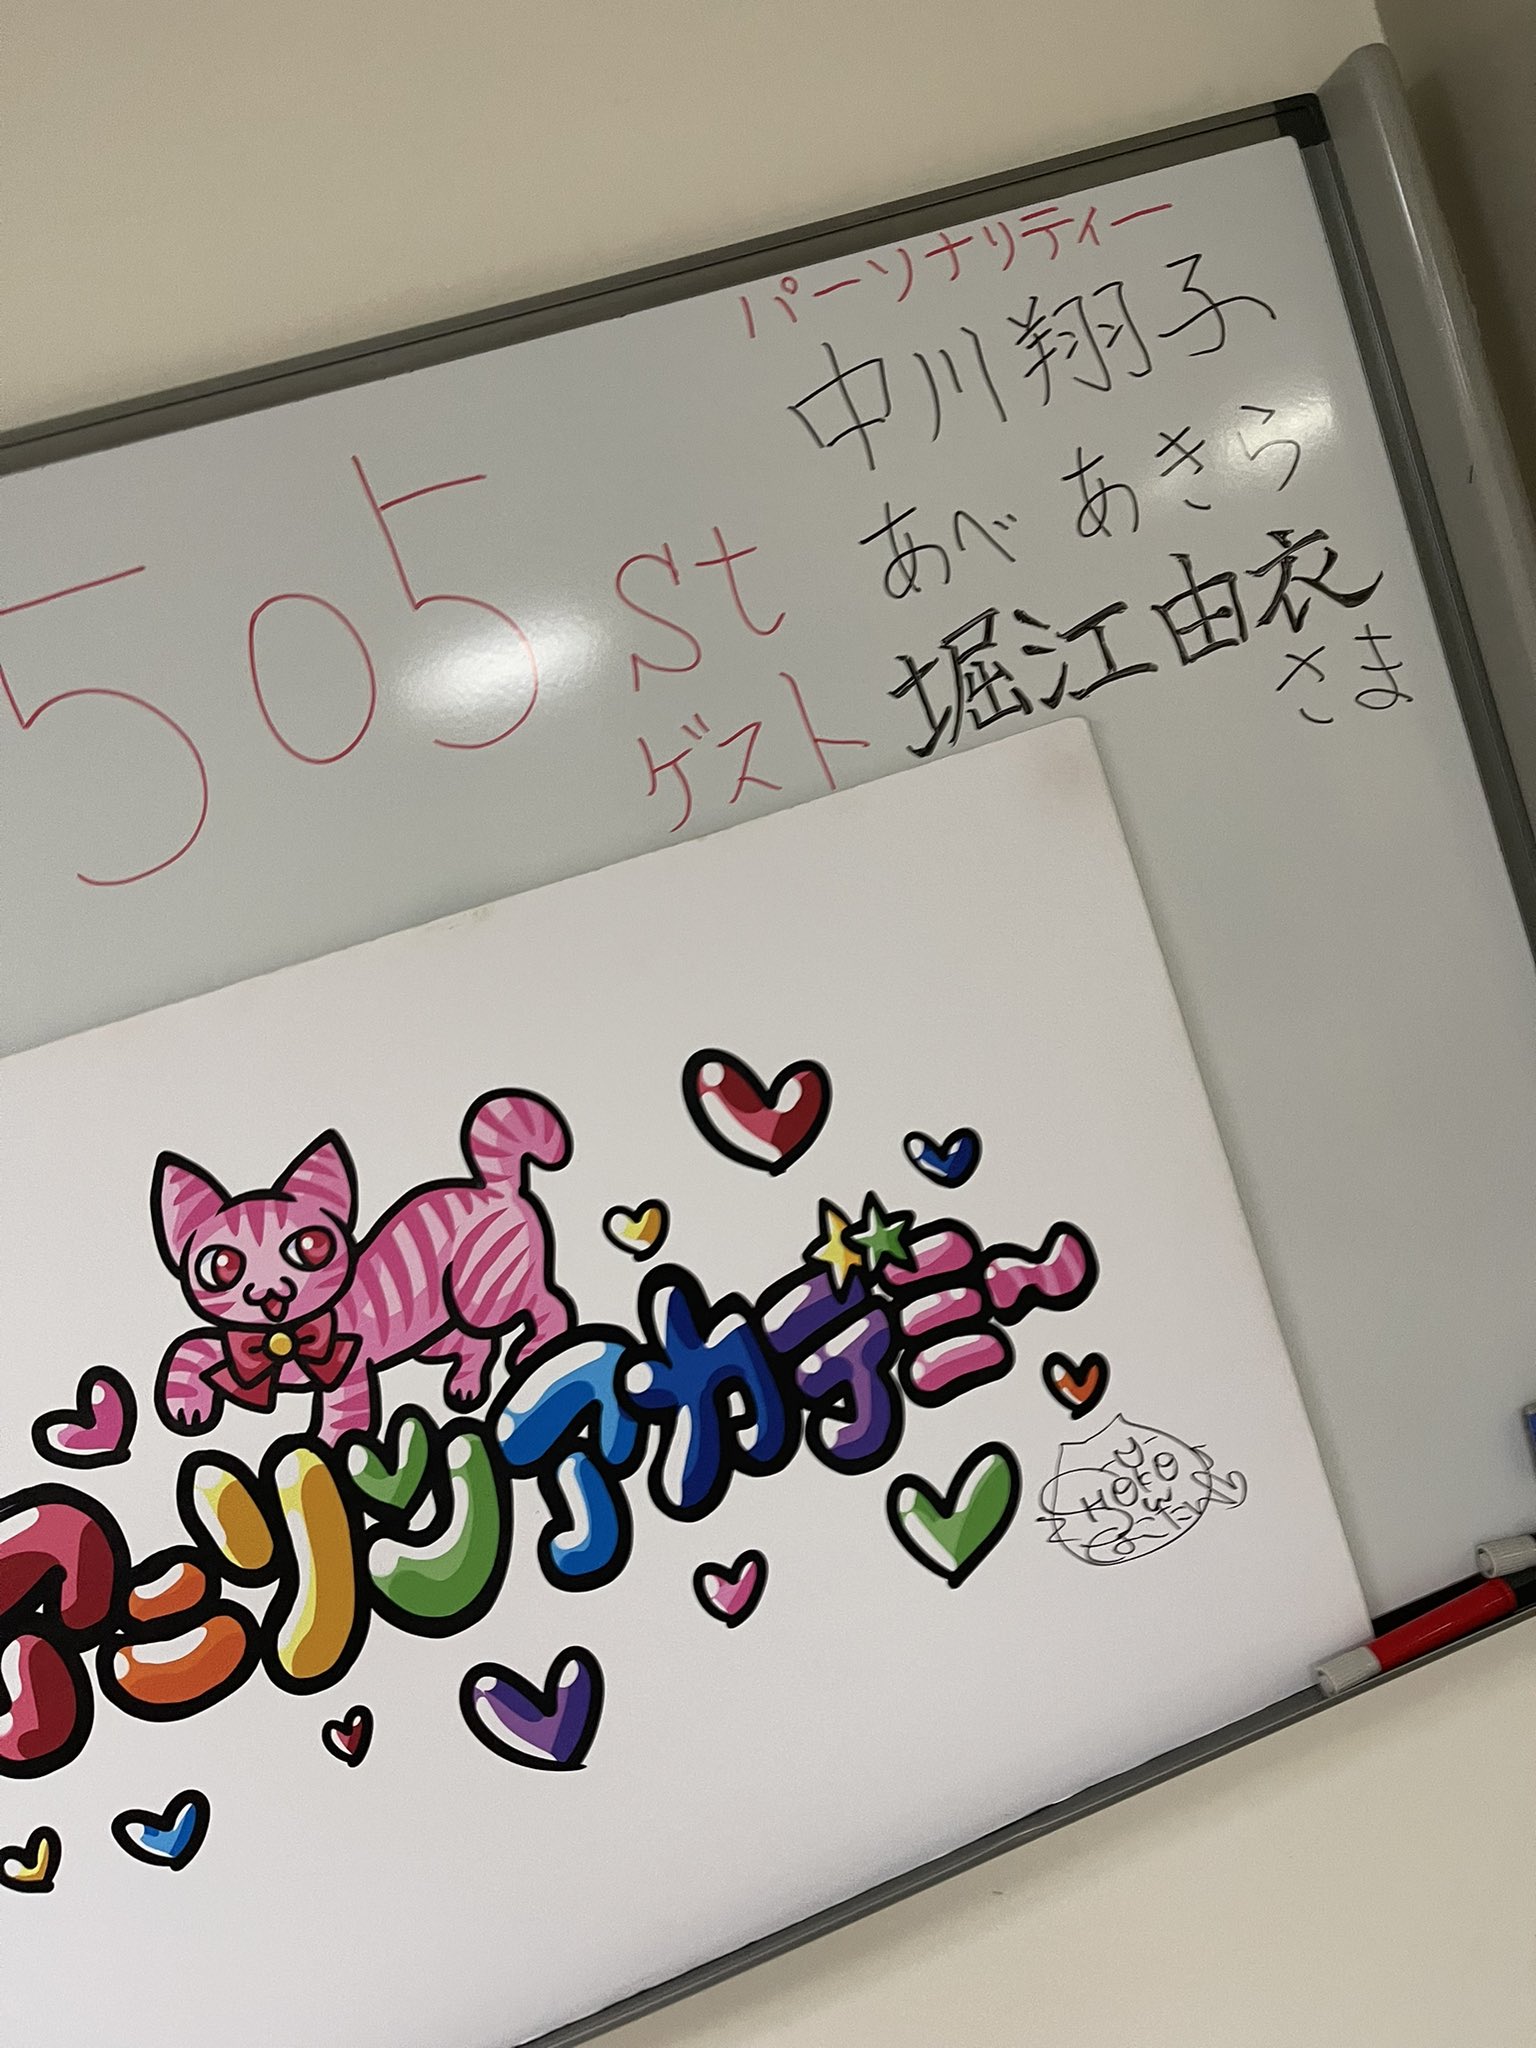 パーソナリティー
中川翔子
あべあきら
505st
ゲスト 堀江由衣
さま
アニソンアカデミ〜